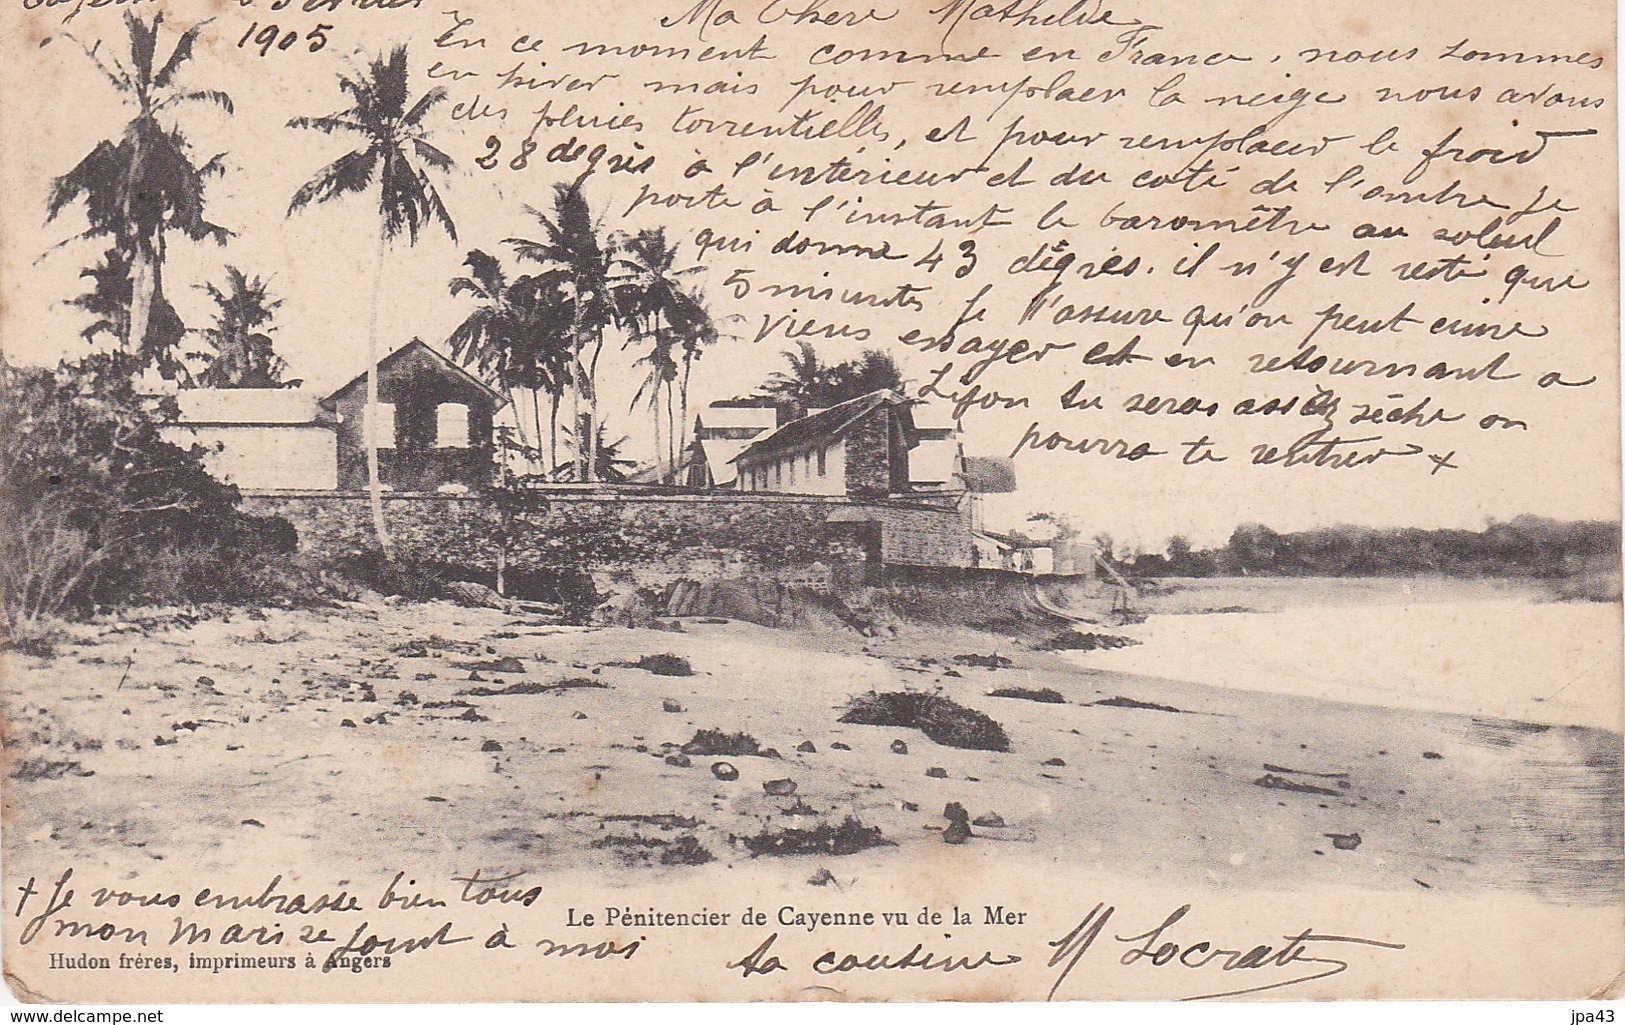 Février
1905
Ma Chere Mathilde
En ce moment comme en France, nous sommes
en hiver mais pour remplacer la neige nous avons
des pluies torrentielles, et pour remplacer le froid
28 degrés à l'intérieur et du coté de l'ombre je
porte à l'instant le baromêtre au soleil
qui donne 43 dêgrés. il n'y est resté que
5 minutes je t'assure qu'on peut cuire
Viens essayer et en retournant a
Lyon tu seras assèz sèche on
pourra te rentrer +
+ Je vous embrasse bien tous
mon mari se joint à moi
ta cousine M Socrate
Le Pénitencier de Cayenne vu de la Mer
Hudon frères, imprimeurs à Angers
www.delcampe.net
jpa43